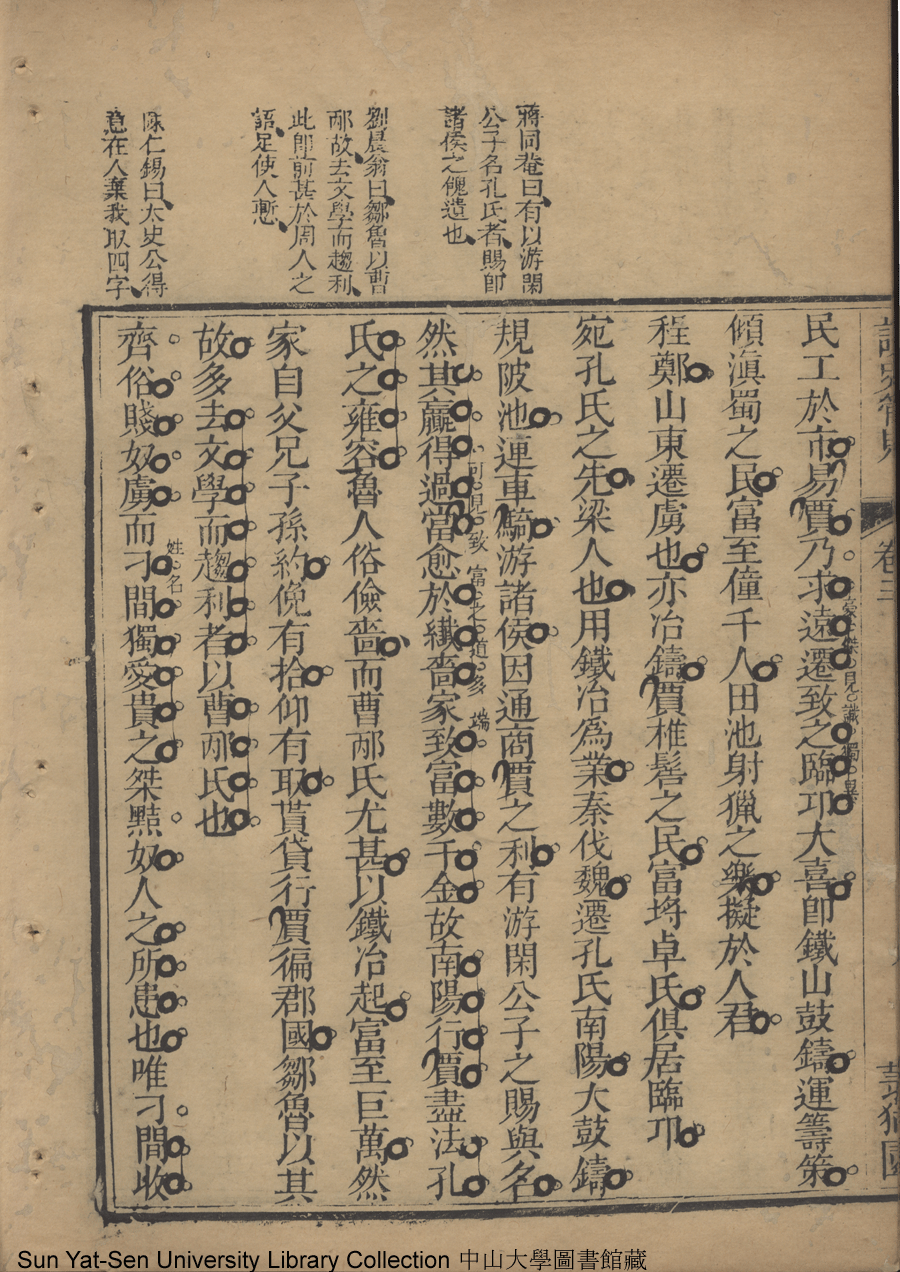 蔣同菴曰有以游閑
公子名孔氏者賜卽
諸侯之餽遺也
劉辰翁曰鄒魯以曹
邴故去文學而趨利
此卽前甚於周人之
語足使人慙
陳仁錫曰太史公得
意在人棄我取四字
卷三
民工於市易賈乃求遠遷致之臨卭大喜卽鐵山鼓鑄運籌策
豪傑見識獨異
傾滇蜀之民富至僮千人田池射獵之樂擬於人君
程鄭山東遷虜也亦冶鑄賈椎髻之民富埒卓氏俱居臨卭
宛孔氏之先梁人也用鐵冶爲業秦伐魏遷孔氏南陽大鼓鑄
規陂池連車騎游諸侯因通商賈之利有游閑公子之賜與名
然其贏得過當愈於纖嗇家致富數千金故南陽行賈盡法孔
可見致富之道多端
氏之雍容魯人俗儉嗇而曹邴氏尤甚以鐵冶起富至巨萬然
家自父兄子孫約俛有拾仰有取貰貸行賈徧郡國鄒魯以其
故多去文學而趨利者以曹邴氏也
齊俗賤奴虜而刁間獨愛貴之桀黠奴人之所患也唯刁間收
姓名
Sun Yat-Sen University Library Collection 中山大學圖書館藏